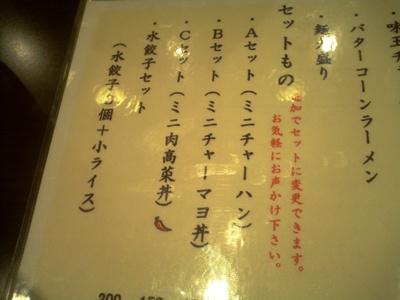 味玉チ
・バターコーンラーメン
・麺大盛り
セットもの
追加でセットに変更できます。
お気軽にお声かけ下さい。
・Aセット(ミニチャーハン)
・Bセット(ミニチャーマヨ丼)
・Cセット(ミニ肉高菜丼)
・水餃子セット
(水餃子3個+小ライス)
200
150